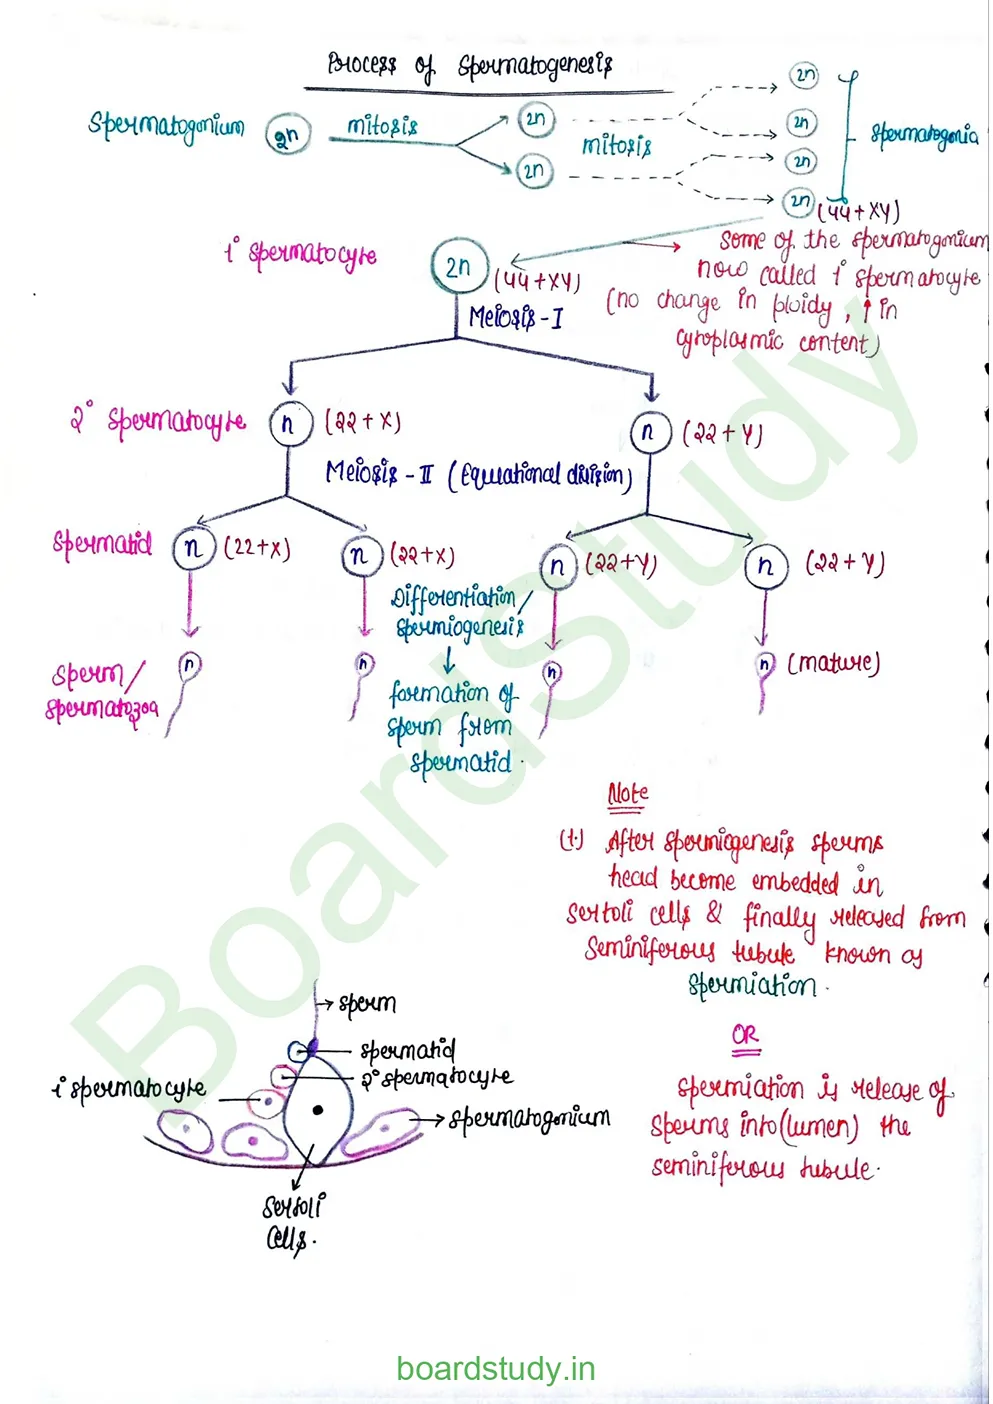 Process of Spermatogenesis
Spermatogonium 2n mitosis 2n 2n mitosis 2n 2n 2n 2n Spermatogonia
(44+XY)
1° spermatocyte 2n (44+XY)
Some of the spermatogonium
now called 1° spermatocyte
(no change in ploidy, ↑ in
cytoplasmic content)
Meiosis-I
2° spermatocyte n (22+X) n (22+Y)
Meiosis-II (Equational division)
Spermatid n (22+X) n (22+X) n (22+Y) n (22+Y)
Differentiation/
spermiogenesis
↓
formation of
sperm from
spermatid.
Sperm/
spermatozoa
n n n n (mature)
Note
(1.) After spermiogenesis sperms
head become embedded in
sertoli cells & finally released from
seminiferous tubule known as
spermiation.
OR
Spermiation is release of
sperms into (lumen) the
seminiferous tubule.
→sperm
spermatid
2° spermatocyte
1° spermatocyte
→spermatogonium
Sertoli
Cells.
Boardstudy
boardstudy.in